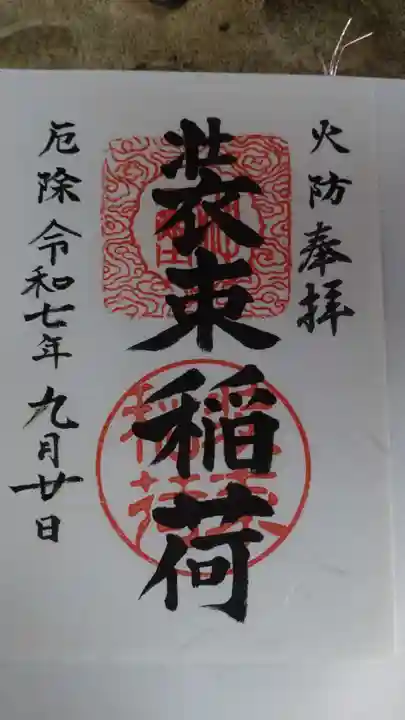 火防 奉拝
装束稲荷
厄除 令和七年 九月廿日
装束
稲荷